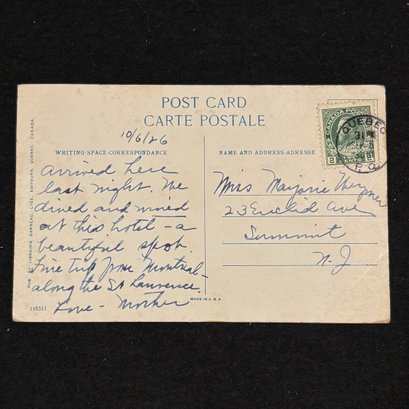 POST CARD
CARTE POSTALE
10/6/26
WRITING SPACE-CORRESPONDANCE
NAME AND ADDRESS-ADRESSE
arrived here
last night. We
dined and
at this hotel - a
beautiful spot.
Fine trip from Montreal -
along the St Lawrence.
Love - Mother
Miss Marjorie
23 Euclid Ave
Summit
N. J
QUEBEC
P. Q.
CANADA POSTAGE
MADE IN U.S.A.
116511